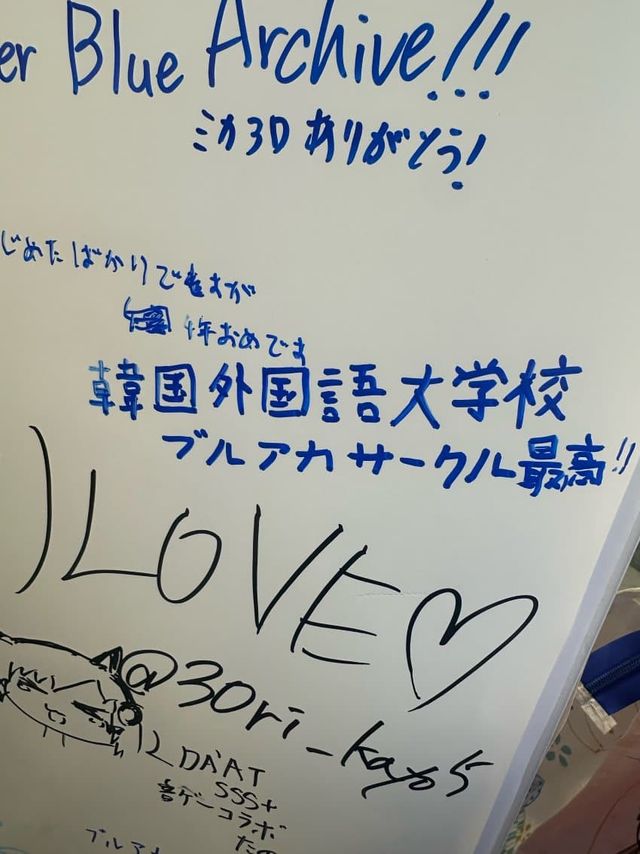 er Blue Archive!!!
ミカ3Dありがとう!
じめたばかりですが
4年おめです
韓国外国語大学校
ブルアカサークル最高!!
LOVE♡
@30ri_kayo5
DA'AT
SSS+
音ゲーコラボ
たの
ブルア